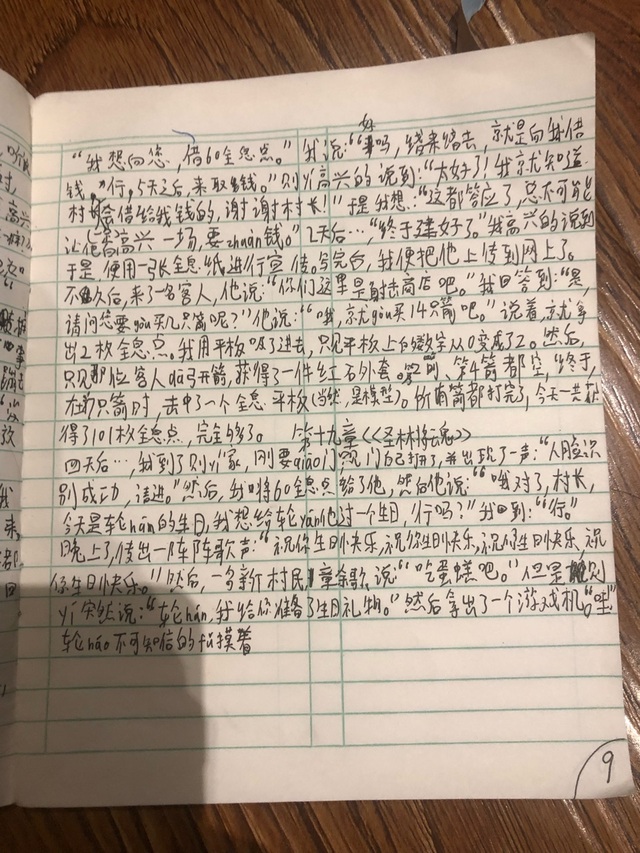 “我想向您，借60全息点。”我说：“好吗，绪来绪去，就是向我借
钱，行，5天之后，来取钱。”则yí高兴的说到：“太好了！我就知道
村会借给我钱的，谢谢村长！”于是我想：“这都答应了，总不可能
让他白高兴一场，要zhuàn钱。”2天后…，“终于建好了。”我高兴的说到
于是，便用一张全息纸进行宣传。写完后，我便把他上传到网上了。
不久后，来了一名客人，他说：“你们这里是射击商店吧。”我回答到：“是，
请问您要gòu买几只箭呢？”他说：“哦，就gòu买14只箭吧。”说着，就拿
出2枚全息点。我用平板吸了进去，只见平板上的数字从0变成了2。然后，
只见那位客人lā弓开箭，获得了一件红石外套。第4箭都空，终于，
在只箭时，击中了一个全息平板（当然，是模型）。所有箭都打完了，今天一共
得了101枚全息点，完全够了。 第十九章《圣林纪元》
四天后…，我到了则yí家，刚要qiāo门，门自己打开了，并出现了一声：“人脸识
别成功，请进。”然后，我将60全息点给了他，然后他说：“哦对了，村长，
今天是轮hán的生日，我想给轮yán他过一个生日，行吗？”我回到：“行。”
晚上了，传出一阵阵歌声：“祝你生日快乐，祝你生日快乐，祝你生日快乐，祝
你生日快乐。”然后，一名新村民章余歌说：“吃蛋糕吧。”但是则
yí突然说：“轮hán，我给你准备了生日礼物。”然后拿出了一个游戏机“哇”
轮háo不可知信的fǔ摸着
9